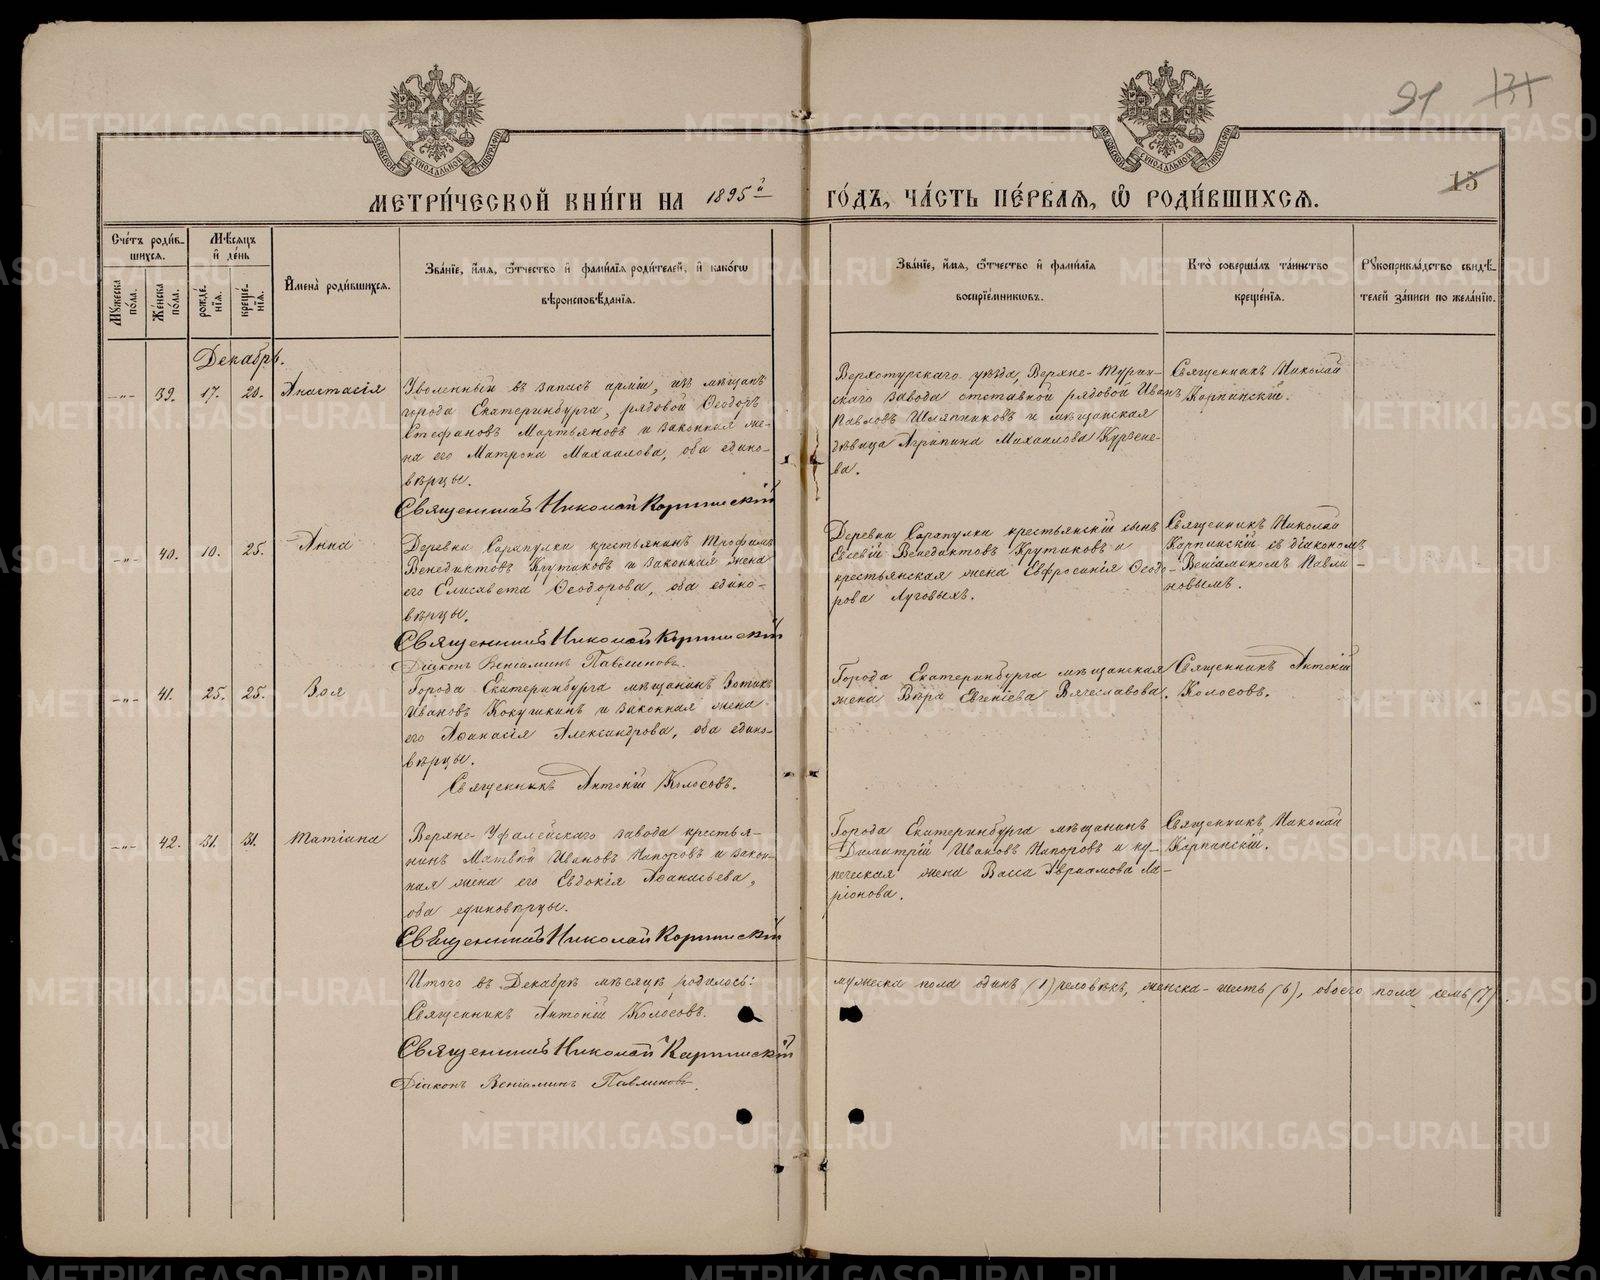 91 131
15
МЕТРИ́ЧЕСКОЙ КНИ́ГИ НА 1895й ГО́ДЪ, ЧА́СТЬ ПЕ́РВАѦ, Ѽ РОДИ́ВШИХСѦ.
Сче́тъ роди́в-
шихся.
Мꙋ́жеска по́ла.
Же́нска по́ла.
Мѣ́сяцъ и҆ де́нь
рожде́нїя.
креще́нїя.
И҆мена̀ роди́вшихся.
Зва́нїе, и҆́мя, ѻ҆́тчество и҆ фами́лїя роди́телей, и҆ како́гѡ
вѣроисповѣ́данїя.
Зва́нїе, и҆́мя, ѻ҆́тчество и҆ фами́лїя
воспрїе́мникѡвъ.
Кто̀ соверша́лъ та́инство
креще́нїя.
Рꙋкоприкла́дство свидѣ́-
телей за́писи по жела́нїю.
Декабрь.
-"- 39. 17. 20. Анастасія
Уволенный въ запасъ арміи, изъ мѣщанъ
города Екатеринбурга, рядовой Ѳеодоръ
Стефановъ Мартьяновъ и законная же-
на его Матрона Михаилова, оба едино-
вѣрцы.
Священникъ Николай Карпинскій
Верхотурскаго уѣзда, Верхне-Турин-
скаго завода отставной рядовой Иванъ
Павловъ Шляпниковъ и мѣщанская
дѣвица Агрипина Михаилова Курзене-
ва.
Священникъ Николай
Карпинскій.
-"- 40. 10. 25. Анна
Деревни Сарапулки крестьянинъ Трофимъ
Венедиктовъ Крутиковъ и законная жена
его Елисавета Ѳеодорова, оба едино-
вѣрцы.
Священникъ Николай Карпинскій
Діаконъ Веніаминъ Павлиновъ.
Деревни Сарапулки крестьянскій сынъ
Евсевій Венедиктовъ Крутиковъ и
крестьянская жена Евфросинія Ѳеодо-
рова Луговыхъ.
Священникъ Николай
Карпинскій съ діакономъ
Веніаминомъ Павли-
новымъ.
-"- 41. 25. 25. Зоя
Города Екатеринбурга мѣщанинъ Зотикъ
Ивановъ Кокушкинъ и законная жена
его Аѳанасія Александрова, оба едино-
вѣрцы.
Священникъ Антоній Колосовъ.
Города Екатеринбурга мѣщанская
жена Вѣра Евгеніева Вячеславова.
Священникъ Антоній
Колосовъ.
-"- 42. 31. 31. Татіана
Верхне-Уфалейскаго завода крестья-
нинъ Матвѣй Ивановъ Напоровъ и закон-
ная жена его Евдокія Аѳанасьева,
оба единовѣрцы.
Священникъ Николай Карпинскій
Города Екатеринбурга мѣщанинъ
Димитрій Ивановъ Напоровъ и ку-
печеская жена Васса Авраамова Ла-
ріонова.
Священникъ Николай
Карпинскій.
Итого въ Декабрѣ мѣсяцѣ родилось: мужеска пола одинъ (1) человѣкъ, женска-шесть (6), обоего пола семь (7).
Священникъ Антоній Колосовъ.
Священникъ Николай Карпинскій
Діаконъ Веніаминъ Павлиновъ.
METRIKI.GASO-URAL.RU